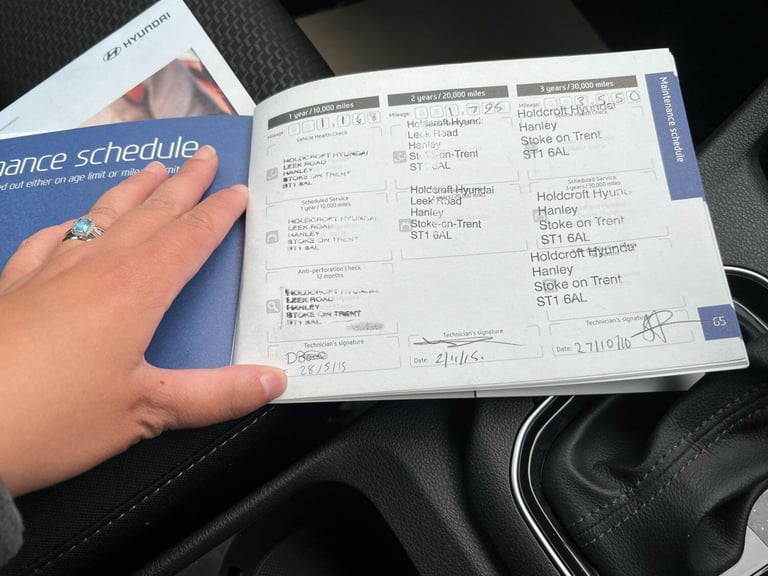 HYUNDAI
nance schedule
ed out either on age limit or mile limit
Maintenance schedule
1 year/10,000 miles
Mileage: 001168
Vehicle Health Check
HOLDCROFT HYUNDAI
LEEK ROAD
HANLEY
STOKE ON TRENT
ST1 6AL
Scheduled Service
1 year/10,000 miles
HOLDCROFT HYUNDAI
LEEK ROAD
HANLEY
STOKE ON TRENT
ST1 6AL
Anti-perforation Check
12 months
HOLDCROFT HYUNDAI
LEEK ROAD
HANLEY
STOKE ON TRENT
ST1 6AL
Technician's signature
28/5/15
2 years/20,000 miles
Mileage: 001,795
Holdcroft Hyund
Leek Road
Hanley
Stoke-on-Trent
ST 6AL
Holdcroft Hyundai
Leek Road
Hanley
Stoke-on-Trent
ST1 6AL
Technician's signature
Date: 2/11/15.
3 years/30,000 miles
Mileage: 003550
Health Check
Holdcroft Hyundai
Hanley
Stoke on Trent
ST1 6AL
Scheduled Service
3 years/30,000 miles
Holdcroft Hyundai
Hanley
Stoke on Trent
ST1 6AL
Holdcroft Hyundai
Hanley
Stoke on Trent
ST1 6AL
Technician's signatu
Date: 27/10/16
65